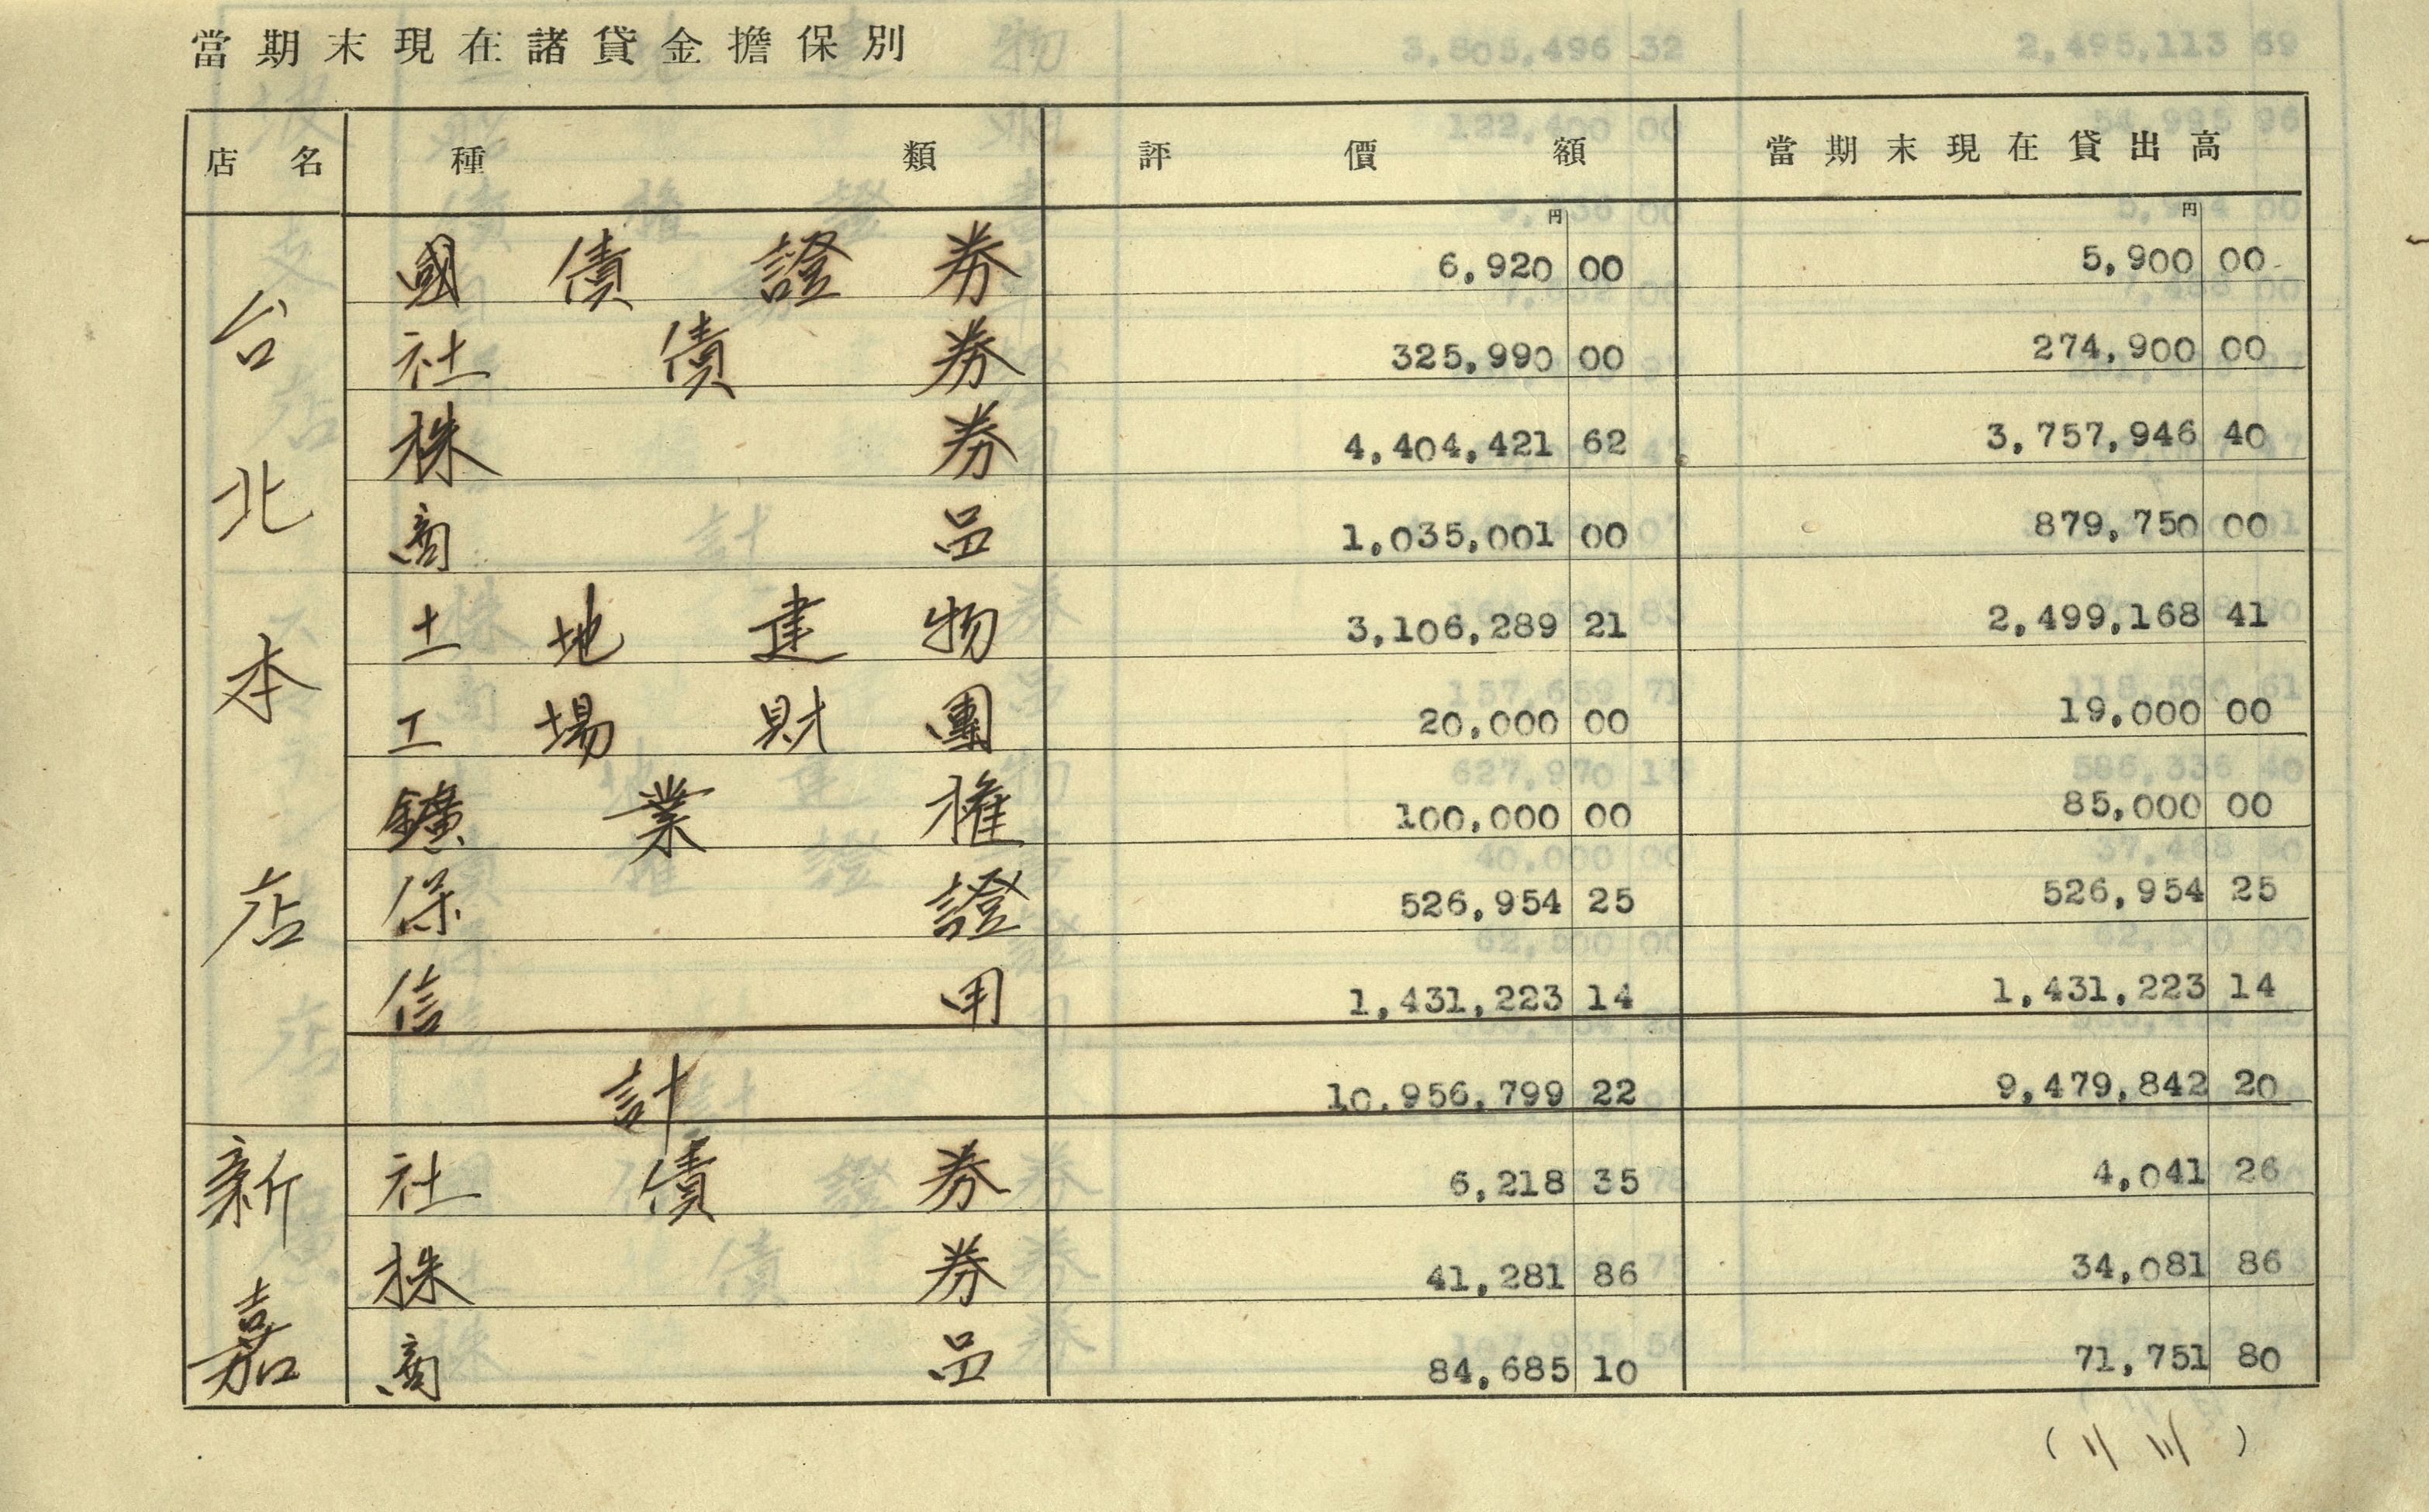 當期末現在諸貸金擔保別
店名 種類 評價額 當期末現在貸出高
円 円
台北本店 國債證券 6,920 00 5,900 00
社債券 325,990 00 274,900 00
株券 4,404,421 62 3,757,946 40
商品 1,035,001 00 879,750 00
土地建物 3,106,289 21 2,499,168 41
工場財團 20,000 00 19,000 00
鑛業權 100,000 00 85,000 00
保證 526,954 25 526,954 25
信用 1,431,223 14 1,431,223 14
計 10,956,799 22 9,479,842 20
新嘉 社債券 6,218 35 4,041 26
株券 41,281 86 34,081 86
商品 84,685 10 71,751 80